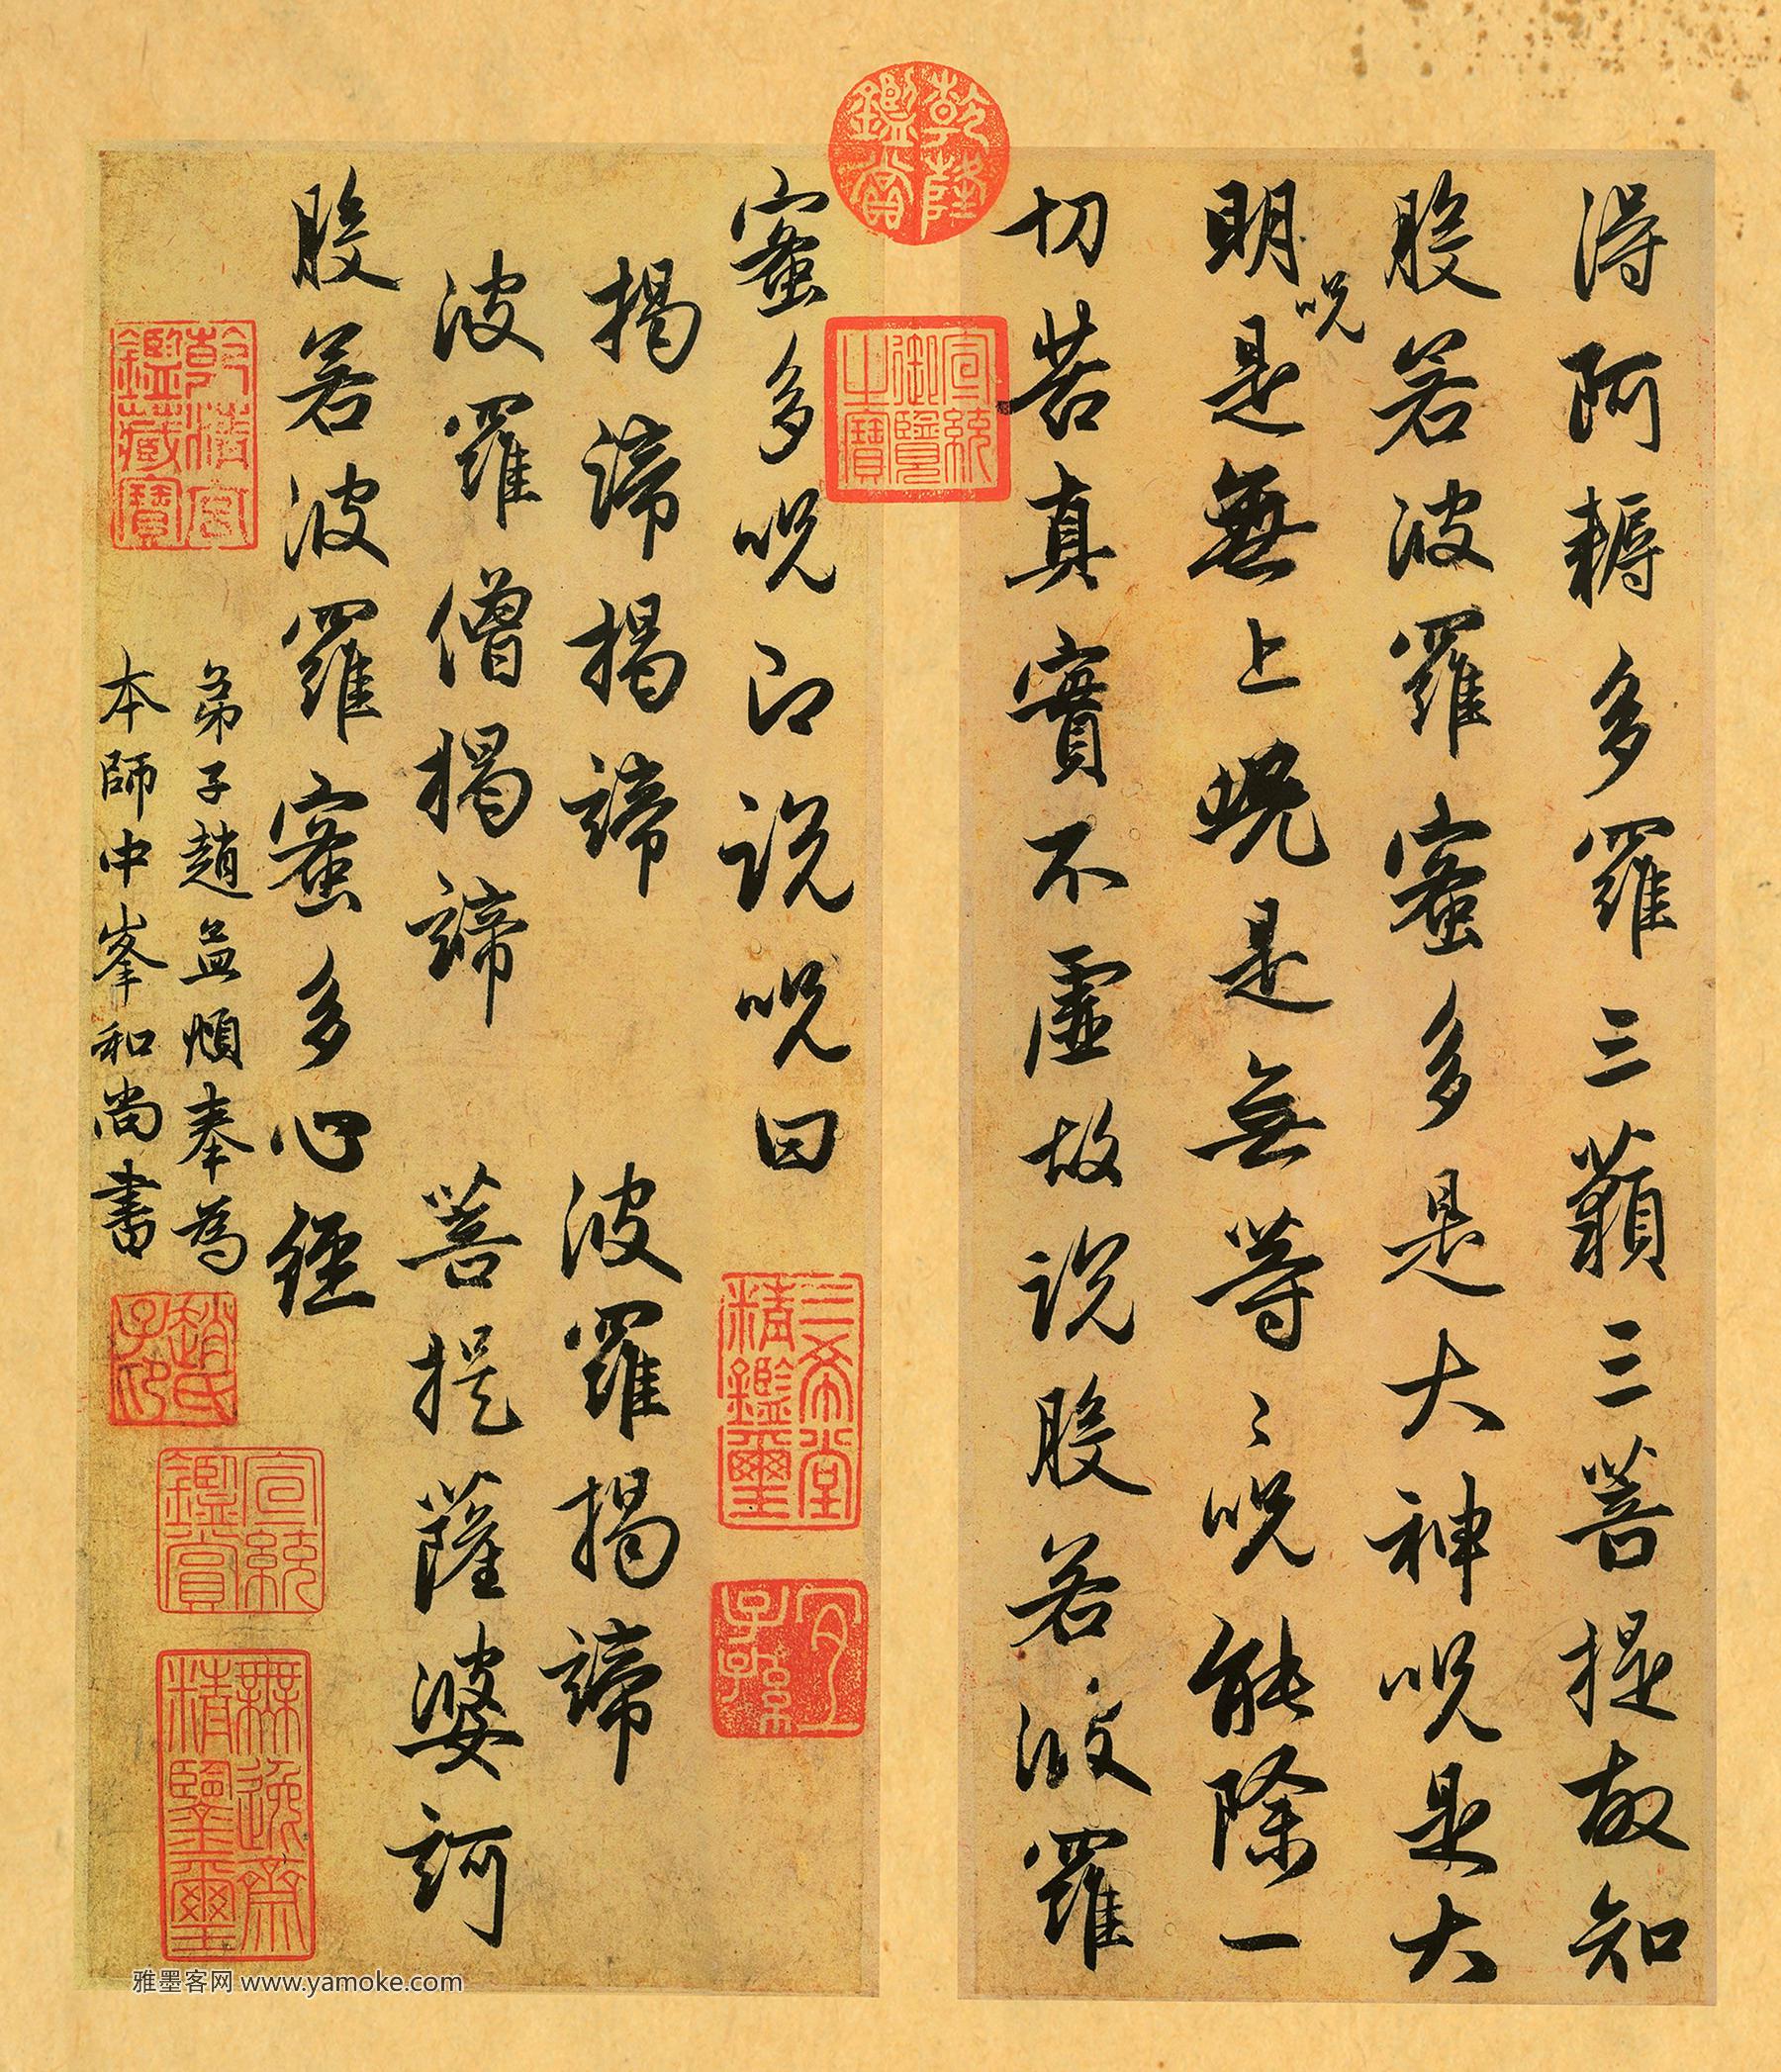 得阿耨多羅三藐三菩提故知
般若波羅蜜多是大神呪是大
明呪是無上呪是無等〻呪能除一
切苦真實不虛故說般若波羅
蜜多呪即說呪曰
揭諦揭諦 波羅揭諦
波羅僧揭諦 菩提薩婆訶
般若波羅蜜多心經
弟子趙孟頫奉為
本師中峯和尚書
乾隆鑑賞
宣統御覽之寶
三希堂精鑑璽
宜子孫
乾清宮鑑藏寶
趙氏子昂
宣統鑑賞
無逸齋精鑒璽
雅墨客网 www.yamoke.com